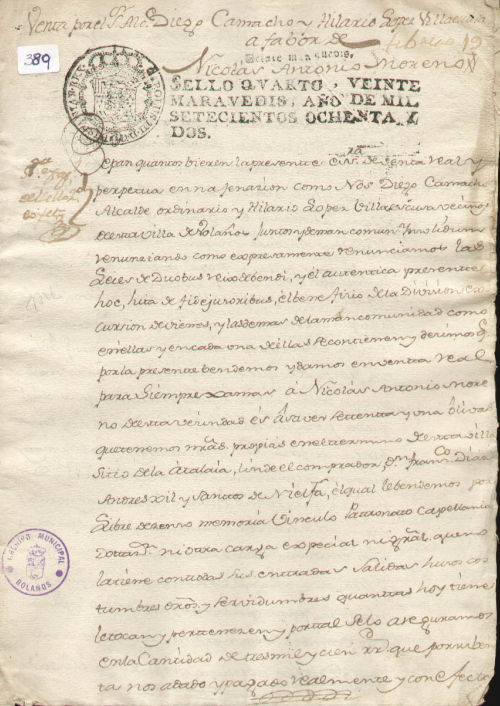 Venta por el Sr. Alce. Diego Camacho y Hilario Lopez Villaescusa
a fabor de
Nicolás Antonio Moreno
389
SELLO QVARTO, VEINTE
MARAVEDIS, AÑO DE MIL
SETECIENTOS OCHENTA Y
DOS.
Sepan quantos bieren la presente Escra. de Venta Real y
perpetua enajenazion como Nos Diego Camacho
Alcalde ordinario y Hilario Lopez Villaescusa vecinos
de esta Villa de Bolaños Juntos y de man comun Ynsolidum
renunciando como expresamente renunciamos las
Leies de Duobus reis debendi, y el autentica presente
hoc, hita de fidejusoribus, el beneficio de la Division ex
cursion de vienes, y las demas de la mancomunidad como
en ellas y en cada una de ellas se contiene y decimos q
por la presente bendemos y damos en venta Real
para Siempre Xamas á Nicolás Antonio More
no de esta vecindad es á saver settenta y una olivas
que tenemos nras. propias en el termino de esta villa
Sitio de la Atalaia, linde el comprador Dn. Franco. Diaz
Andres Xil y Santos de Nieffa, el qual le bendemos por
Libre de zenso memoria Vinculo Patronato Capellania
ni otra carga especial ni gral. que no
la tiene con todas sus entradas Salidas husos cos
tumbres dros. y servidumbres quantas hoy tiene
le tocan y pertenezen y por tal se lo aseguramos
en la Cantidad de tres mil y cien rr. que por su ben
ta nos a dado y pagado Realmente y con efecto
ARCHIVO MUNICIPAL
BOLAÑOS